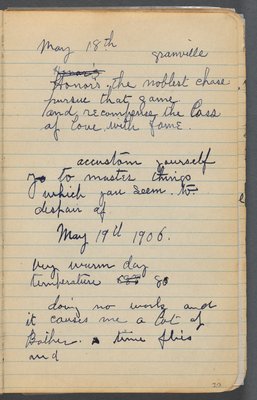 May 18th
granville
Honor's
Honor's the noblest chase
pursue that game
and recompenses the loss
of love with fame.
accustom yourself
to to master things
which you seem to
despair of
May 19th 1906.
Very warm day
temperature 80
doing no work and
it causes me a lot of
Bother. time flies
and